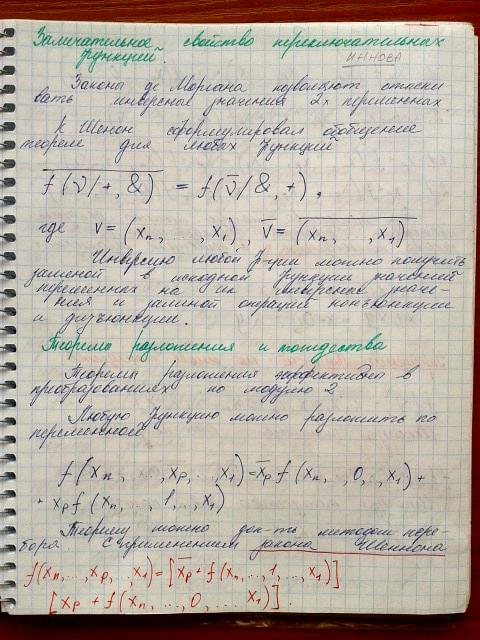 Замечательное свойство переключательных
функций.
ИИНОВА
Законы де Моргана позволяют отыски
вать инверсные значения 2х переменных.
К Шенон сформулировал обобщение
теорем для любых функций
f(ν/+, &) = f(ν̅/&, +),
где V = (Xn, ..., X1), V̅ = (Xn, , X1)
Инверсию любой ф-ции можно получить
заменой в исходной функции значений
переменных на их инверсные значе-
ния и заменой операций конъюнкции
и дизъюнкции.
Теоремы разложения и тождества
Теоремы разложения эффективны в
преобразованиях по модулю 2
Любую функцию можно разложить по
переменной
f(Xn, ..., Xp, .., X1) = X̅p f(Xn, ..., 0, .., X1) +
+ Xp f(Xn, ..., 1, ..., X1)
Теорему можно док-ть методом пере
бора с применением закона Шеннона
f(Xn,..., Xp, ... X1) = [X̅p + f(Xn, ..., 1, ..., X1)]
[Xp + f(Xn, ..., 0, ... X1)].